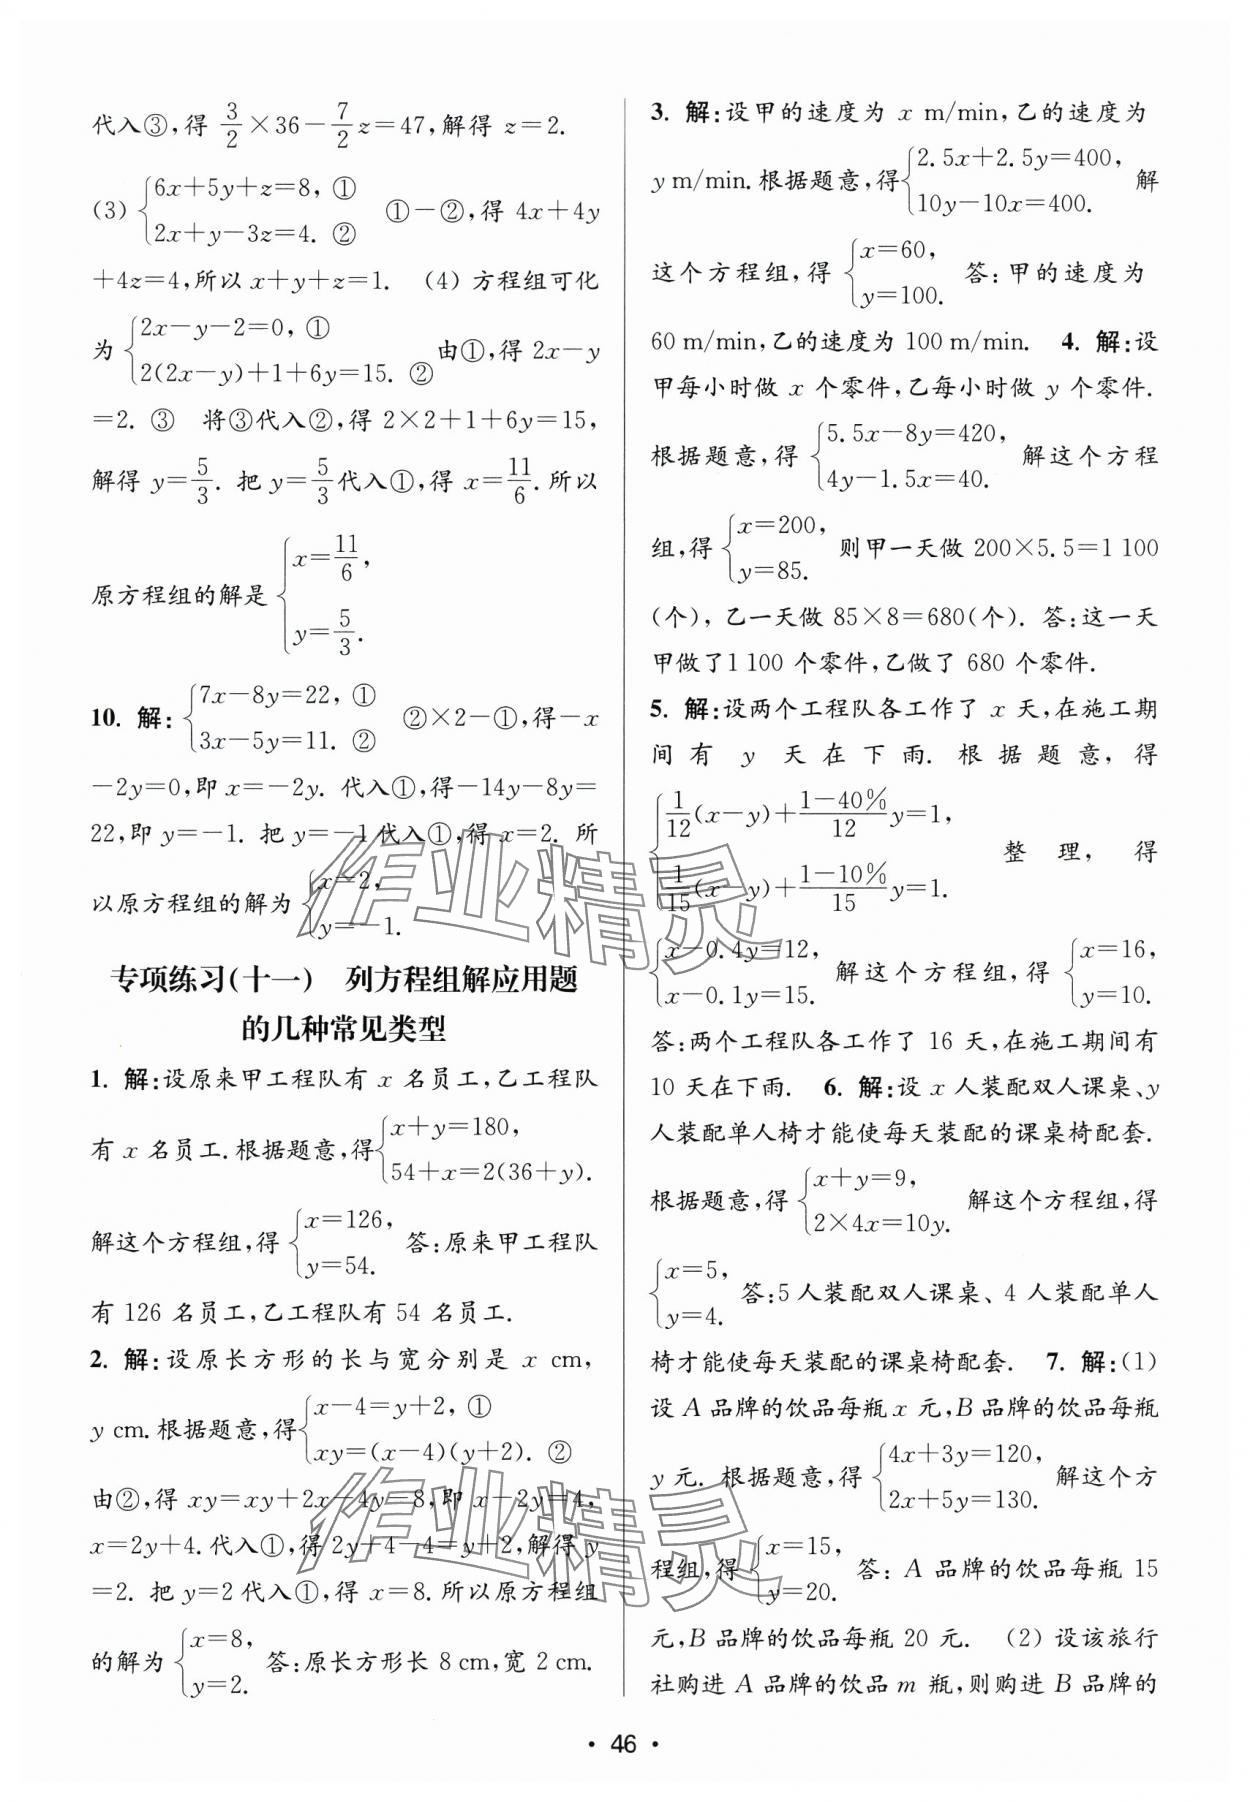 代入③,得 3/2×36－7/2z=47,解得 z=2.
(3) {6x+5y+z=8, ①
2x+y－3z=4. ② ①－②,得 4x+4y
+4z=4,所以 x+y+z=1. (4) 方程组可化
为 {2x－y－2=0, ①
2(2x－y)+1+6y=15. ② 由①,得 2x－y
=2. ③ 将③代入②,得 2×2+1+6y=15,
解得 y=5/3. 把 y=5/3代入①,得 x=11/6.所以
原方程组的解是 {x=11/6,
y=5/3.
10. 解: {7x－8y=22, ①
3x－5y=11. ② ②×2－①,得－x
－2y=0,即 x=－2y. 代入①,得－14y－8y=
22,即 y=－1. 把 y=－1代入①,得 x=2. 所
以原方程组的解为 {x=2,
y=－1.
专项练习(十一) 列方程组解应用题
的几种常见类型
1. 解:设原来甲工程队有 x 名员工,乙工程队
有 x 名员工.根据题意,得 {x+y=180,
54+x=2(36+y).
解这个方程组,得 {x=126,
y=54. 答:原来甲工程队
有 126 名员工,乙工程队有 54 名员工.
2. 解:设原长方形的长与宽分别是 x cm,
y cm.根据题意,得 {x－4=y+2, ①
xy=(x－4)(y+2). ②
由②,得 xy=xy+2x－4y－8,即 x－2y=4,
x=2y+4.代入①,得 2y+4－4=y+2,解得 y
=2. 把 y=2代入①,得 x=8.所以原方程组
的解为 {x=8,
y=2. 答:原长方形长 8 cm,宽 2 cm.
3. 解:设甲的速度为 x m/min,乙的速度为
y m/min.根据题意,得 {2.5x+2.5y=400,
10y－10x=400. 解
这个方程组,得 {x=60,
y=100. 答:甲的速度为
60 m/min,乙的速度为 100 m/min. 4. 解:设
甲每小时做 x 个零件,乙每小时做 y 个零件.
根据题意,得 {5.5x－8y=420,
4y－1.5x=40. 解这个方程
组,得 {x=200,
y=85. 则甲一天做 200×5.5=1 100
(个), 乙一天做 85×8=680(个). 答:这一天
甲做了1 100 个零件,乙做了 680 个零件.
5. 解:设两个工程队各工作了 x 天,在施工期
间有 y 天在下雨. 根据题意, 得
{1/12(x－y)+(1－40%)/12y=1,
1/15(x－y)+(1－10%)/15y=1. 整理,得
{x－0.4y=12,
x－0.1y=15. 解这个方程组,得 {x=16,
y=10.
答:两个工程队各工作了 16 天,在施工期间有
10 天在下雨. 6. 解:设 x 人装配双人课桌、y
人装配单人椅才能使每天装配的课桌椅配套.
根据题意,得 {x+y=9,
2×4x=10y. 解这个方程组,得
{x=5,
y=4. 答:5 人装配双人课桌、4 人装配单人
椅才能使每天装配的课桌椅配套. 7. 解:(1)
设 A 品牌的饮品每瓶 x 元,B 品牌的饮品每瓶
y 元. 根据题意,得 {4x+3y=120,
2x+5y=130. 解这个方
程组,得 {x=15,
y=20. 答: A 品牌的饮品每瓶 15
元,B 品牌的饮品每瓶 20 元. (2) 设该旅行
社购进 A 品牌的饮品 m 瓶,则购进 B 品牌的
· 46 ·
作业精灵
作业精灵